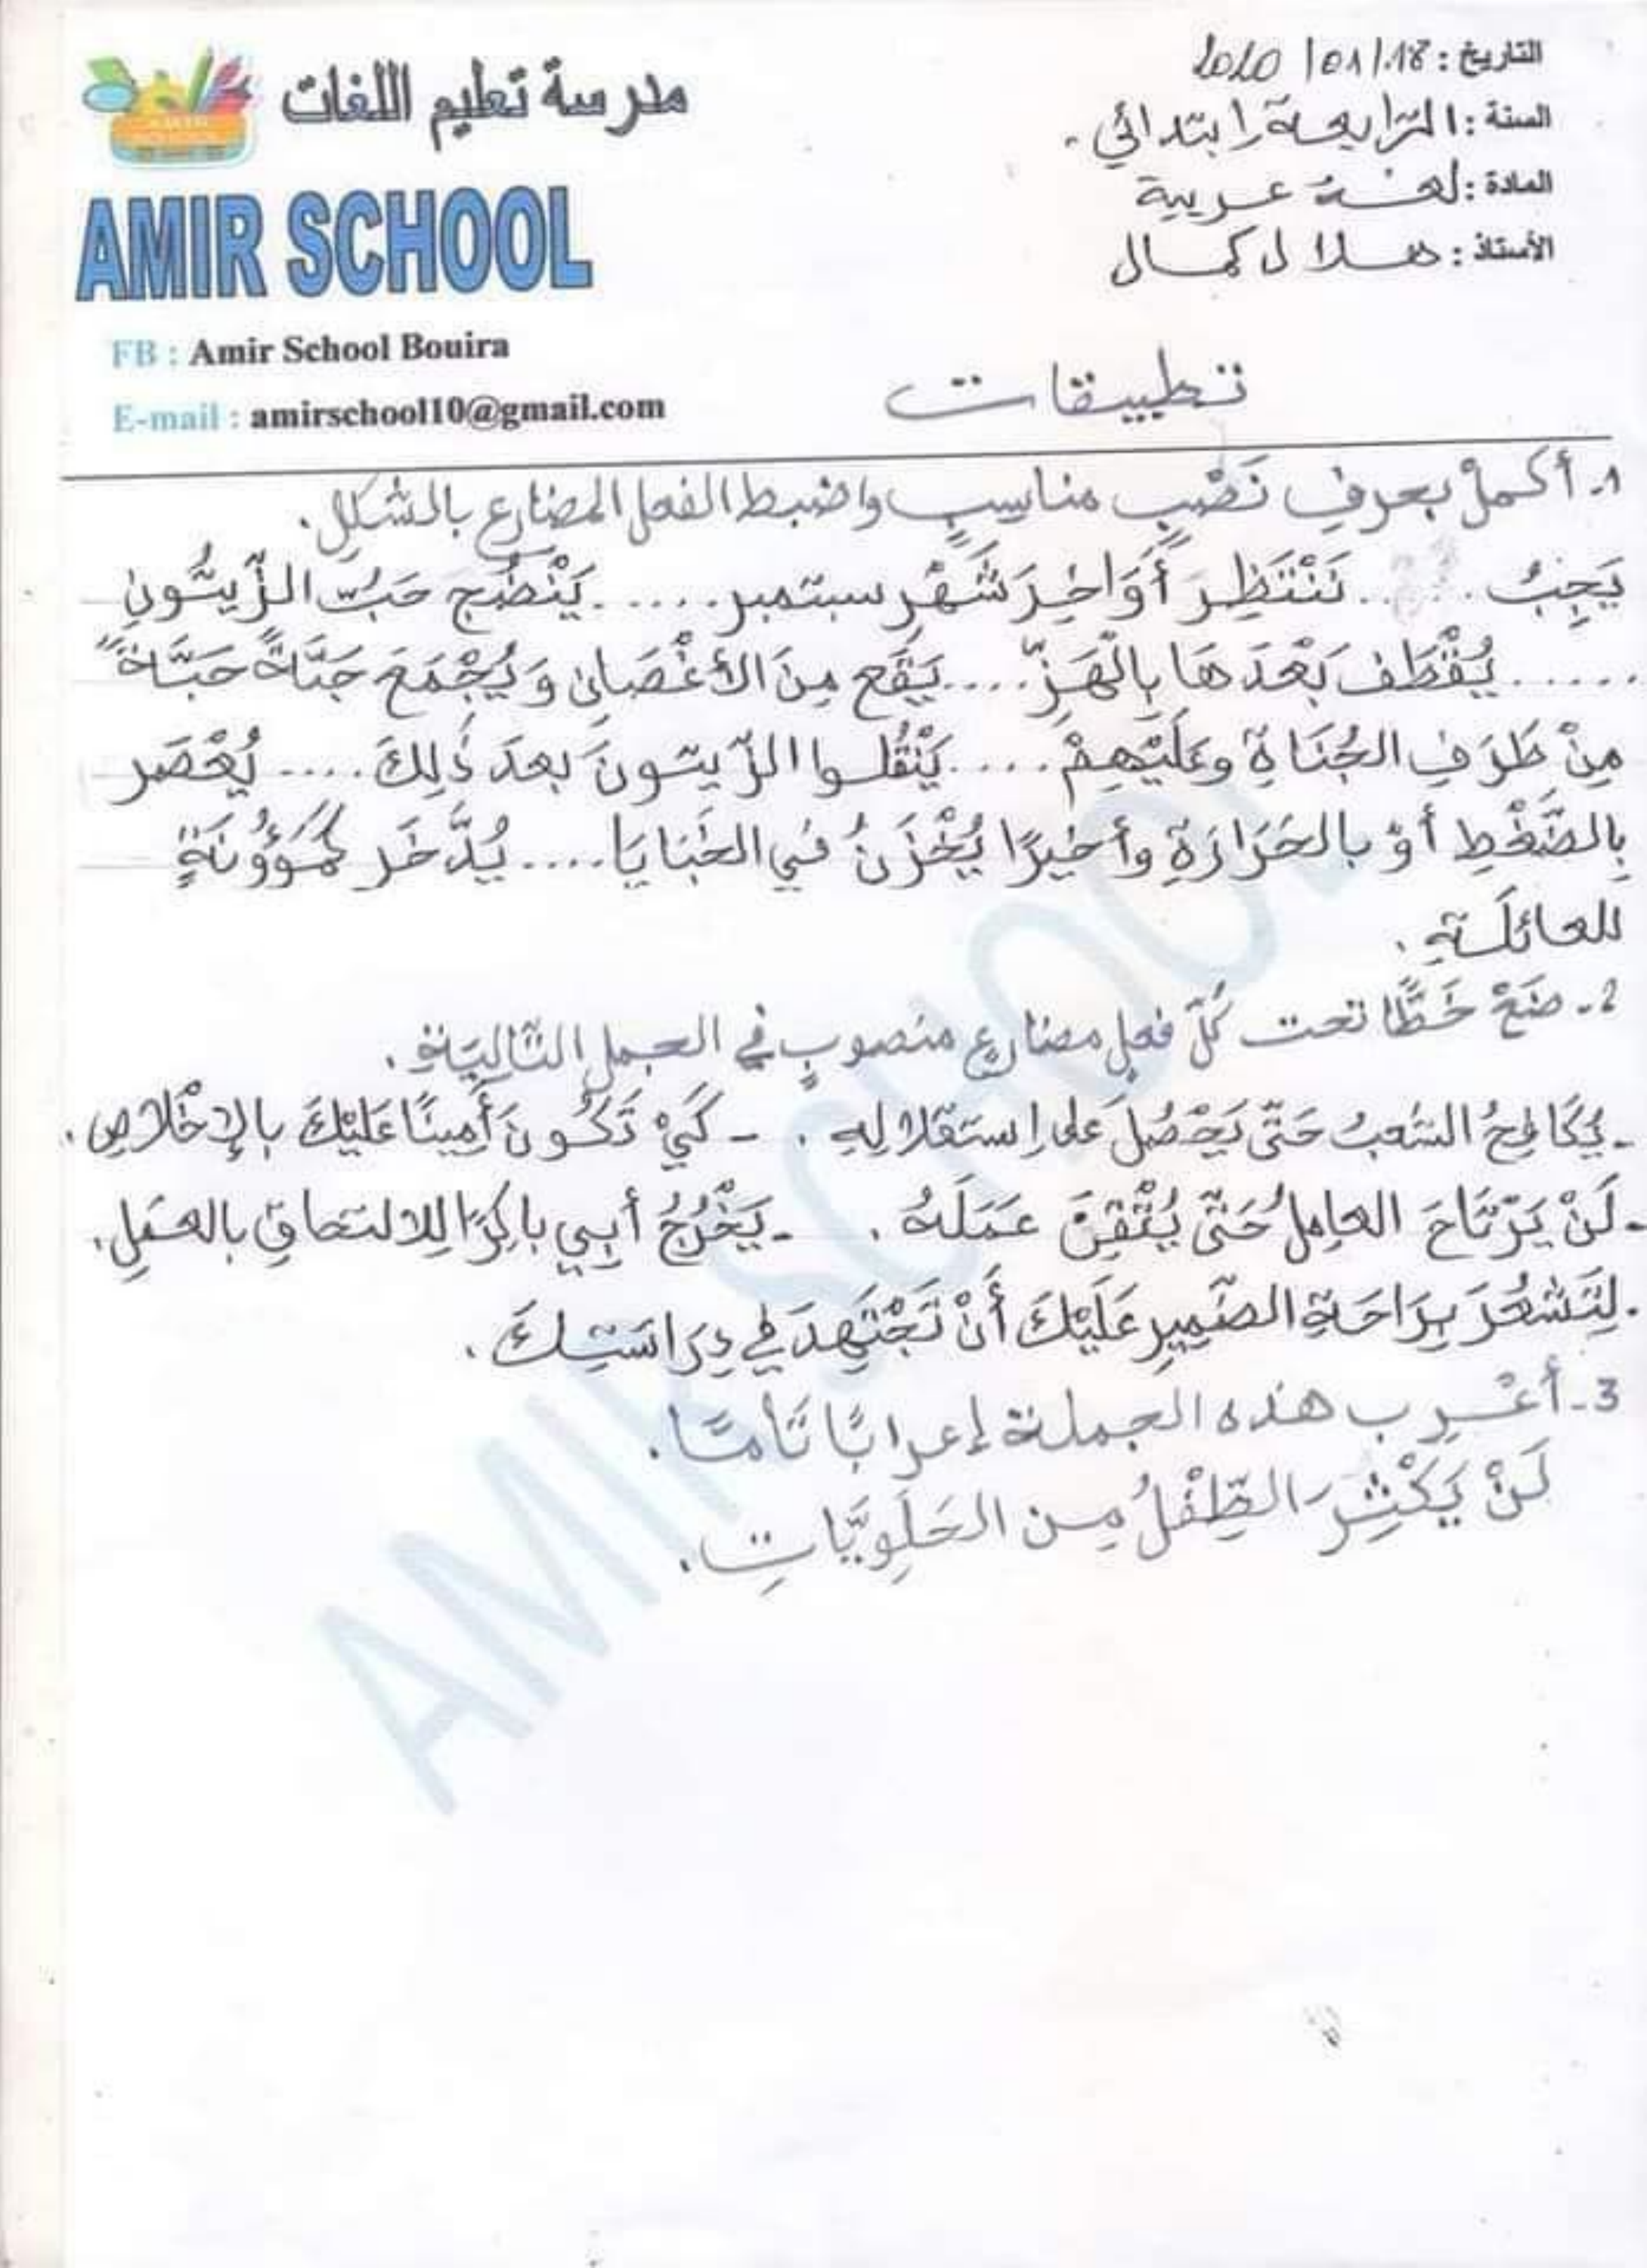 مدرسة تعليم اللغات
AMIR SCHOOL
FB : Amir School Bouira
E-mail : amirschool10@gmail.com
التاريخ : 18/01/2020
السنة : الرّابعة ابتدائي.
المادة : لغة عربية
الأستاذ : هلال كمال
تطبيقات
1- أكملْ بحرفِ نَصْبٍ مناسِبٍ واضبط الفعل المضارع بالشكلِ.
يَجِبُ ..... نَنْتَظِر أَوَاخِرَ شَهْرِ سبتمبر ..... يَنْضُج حَبُّ الزّيتُونِ
..... يُقْطَف بَعْدَهَا بِالْهَزِّ .... يَقَع مِنَ الأغْصَانِ وَيُجْمَعَ حَبَّةً حَبَّةً
مِنْ طَرَفِ الجُنَاةِ وعَلَيْهِمْ .... يَنْقُلُوا الزّيتونَ بعدَ ذٰلِكَ .... يُعْصَر
بِالضَّغْطِ أوْ بالحَرَارَةِ وأخيرًا يُخْزَنُ في الخَبَايَا .... يُدَّخَر كمَؤُونَةٍ
للعائلَةِ.
2- ضَعْ خَطًّا تحت كُلّ فعلٍ مضارعٍ منصوبٍ في الجملِ التّالِيَةِ.
- يُكَافِحُ الشعبُ حَتّى يَحْصُلَ على اِستقلالِهِ. - كَيْ تَكُونَ أَمِينًا عَلَيْكَ بالإِخْلاصِ.
- لَنْ يَرْتَاحَ العامِلُ حَتّى يُتْقِنَ عَمَلَهُ. - يَخْرُجُ أبِي باكِرًا لِلالتحاقِ بالعمَلِ.
- لِتَشعُرَ بِرَاحَةِ الضّمِيرِ عَلَيْكَ أَنْ تَجْتَهِدَ في دِرَاسَتِكَ.
3- أعْرِب هذه الجملة إعرابًا تَامًّا.
لَنْ يَكْثِرَ الطِّفْلُ مِن الحَلَوِيَّاتِ.
AMIR SCHOOL